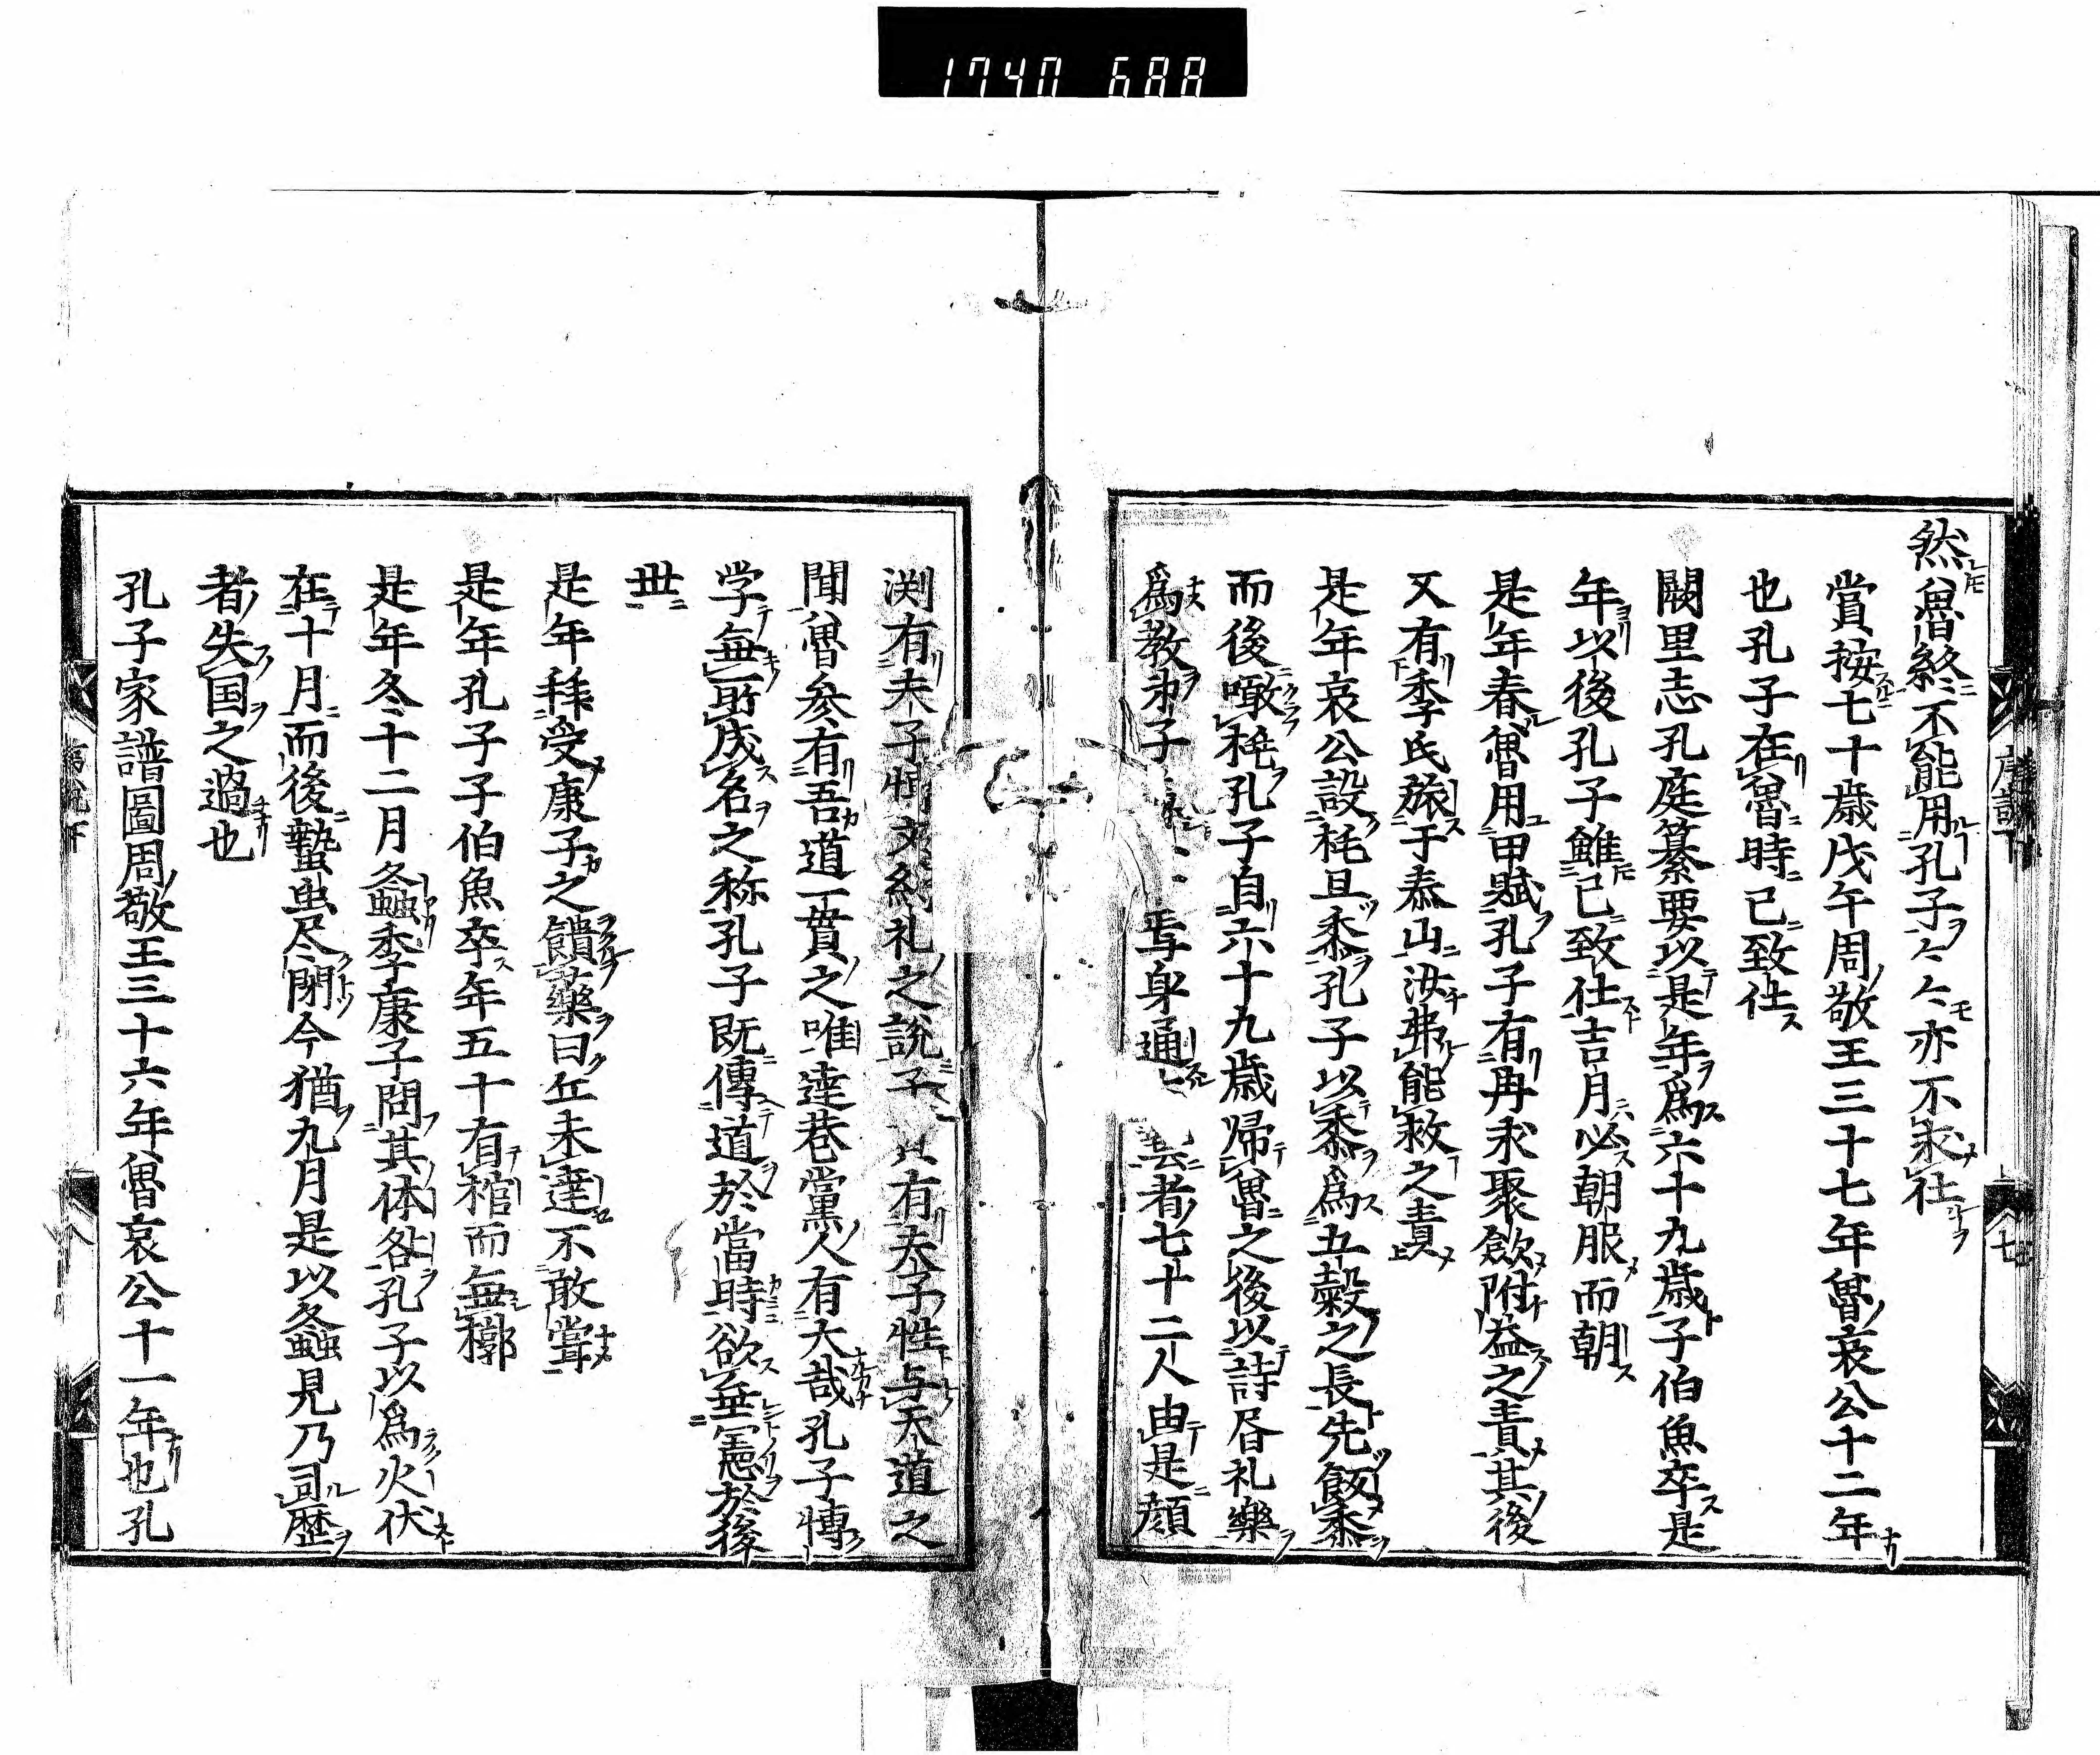 1740 688
然魯終不能用孔子々々亦不求仕
賞按七十歳戊午周敬王三十七年魯哀公十二年
也孔子在魯時已致仕
闕里志孔庭纂要以是年為六十九歳子伯魚卒是
年以後孔子雖已致仕吉月必朝服而朝
是年春魯用田賦孔子有冉求聚歛附益之責其後
又有季氏旅于泰山汝弗能救之責
是年哀公設桃且黍孔子以黍為五穀之長先飯黍
而後噉桃孔子自六十九歳帰魯之後以詩昏礼樂
為教弟子焉身通藝者七十二人由是顔
渕有夫子博文約礼之説子貢有夫子性与天道之
聞魯参有吾道一貫之唯達巷黨人有大哉孔子博
学無所成名之称孔子既傳道於當時欲垂憲於後
世
是年拝受康子之饋藥曰丘未達不敢嘗
是年孔子子伯魚卒年五十有棺而無槨
是年冬十二月螽季康子問其体咎孔子以為火伏
在十月而後蟄虫尽閉今猶九月是以螽見乃司歴
者失国之過也
孔子家譜圖周敬王三十六年魯哀公十一年也孔